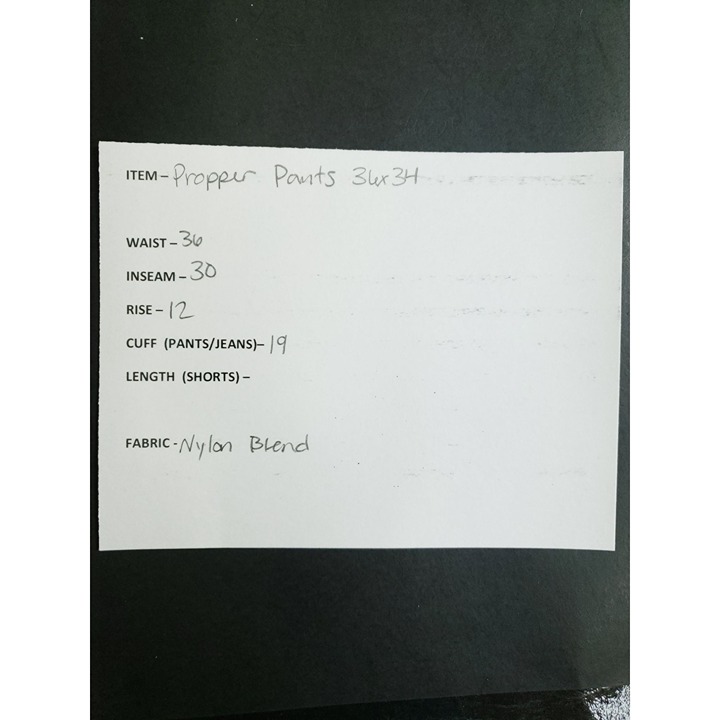 ITEM – Propper Pants 36x34
WAIST – 36
INSEAM – 30
RISE – 12
CUFF (PANTS/JEANS)– 19
LENGTH (SHORTS) –
FABRIC - Nylon Blend